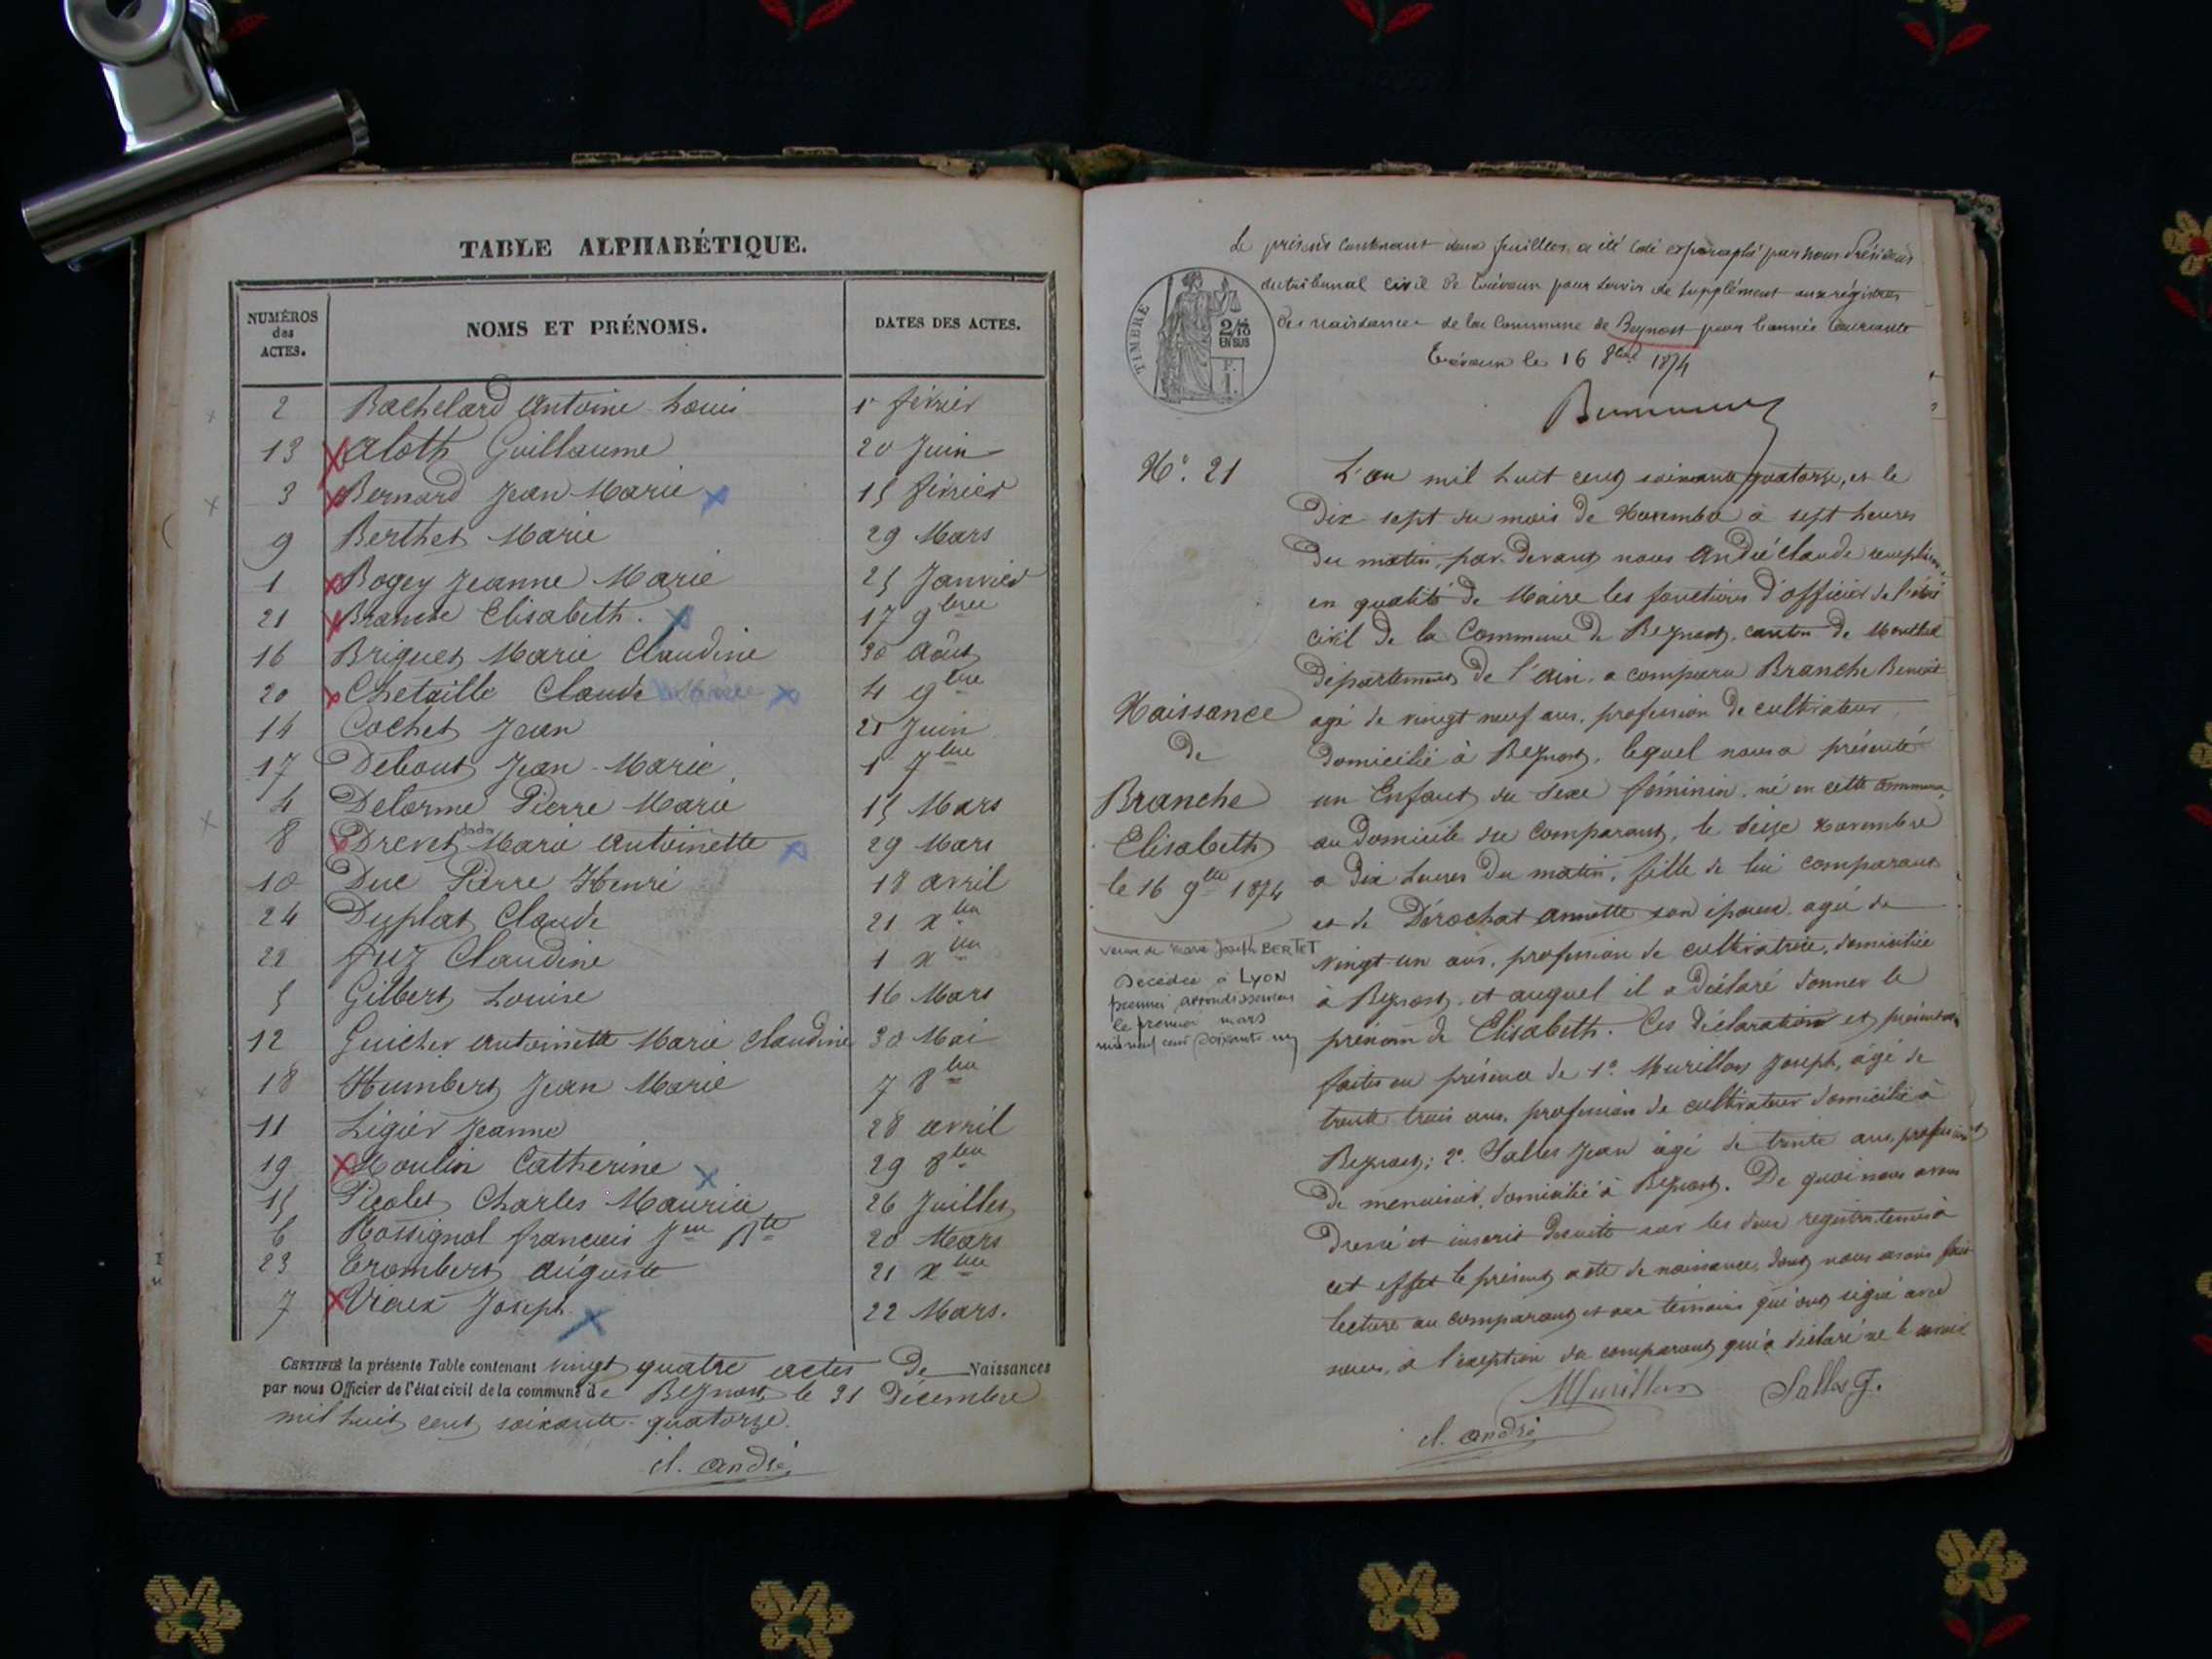 TABLE ALPHABÉTIQUE.
NUMÉROS des ACTES. NOMS ET PRÉNOMS. DATES DES ACTES.
2 Bachelard Antoine Louis 1er février
13 Aloth Guillaume 20 Juin
3 Bernard Jean Marie 15 février
9 Berthet Marie 29 Mars
1 Bogey Jeanne Marie 25 Janvier
21 Branche Elisabeth. 17 9bre
16 Briguet Marie Claudine 30 Août
20 Chetaille Claude 4 9bre
14 Cochet Jean 21 Juin
17 Debout Jean-Marie 1er 7bre
4 Delorme Pierre Marie 15 Mars
8 Drevet Marie Antoinette 29 Mars
10 Duc Pierre Henri 18 avril
24 Duplat Claude 21 xbre
22 Claudine 1 xbre
5 Gilbert Louise 16 Mars
12 Guicher Antoinette Marie Claudine 30 Mai
18 Humbert Jean Marie 7 8bre
11 Ligier Jeanne 28 avril
19 Moulin Catherine 29 8bre
15 Picolet Charles Maurice 26 Juillet
6 Rossignol françois 20 Mars
23 Trombert Auguste 21 xbre
7 Vieux Joseph 22 Mars.
CERTIFIÉ la présente Table contenant vingt quatre actes de Naissances
par nous Officier de l'état civil de la commune de Beynost le 31 Décembre
mil huit cent soixante-quatorze.
cl. andré
Le présent contenant deux feuilles a été coté et paraphé par nous Président
du tribunal civil de Trévoux pour servir de supplément aux régistres
des naissances de la Commune de Beynost pour l'année courante
Trévoux le 16 8bre 1874
TIMBRE
2/10
EN SUS
N°. 21
L'an mil huit cent soixante quatorze, et le
Dix sept du mois de Novembre à sept heures
du matin, par devant nous André Claude remplissant
en qualité de Maire les fonctions d'officier de l'état
civil de la Commune de Beynost, canton de Montluel
département de l'Ain, a comparu Branche Benoit
agé de vingt neuf ans, profession de cultivateur
domicilié à Beynost, lequel nous a présenté
un Enfant du sexe féminin, né en cette commune,
au domicile du comparant, le seize novembre
a dix heures du matin, fille de lui comparant
et de Dérochat annette son épouse agée de
vingt-un ans, profession de cultivatrice, domiciliée
à Beynost, et auquel il a déclaré donner le
prénom de Elisabeth. Ces déclaration et présentation
faites en présence de 1° Murillon Joseph, âgé de
trente trois ans, profession de cultivateur domicilié à
Beynost; 2°. Salles Jean âgé de trente ans, profession
de menuisier, domicilié à Beynost. De quoi nous avons
dressé et inscrit desuite sur les deux registres tenus à
cet effet le présent acte de naissance, dont nous avons fait
lecture au comparant et aux témoins qui ont signé avec
nous, à l'exception du comparant qui a déclaré ne le savoir
Murillon Salles J.
cl. andré
Naissance
de
Branche
Elisabeth
le 16 9bre 1874
veuve de Marie Joseph BERTET
Décédée à LYON
premier arrondissement
le premier mars
mil neuf cent soixante un